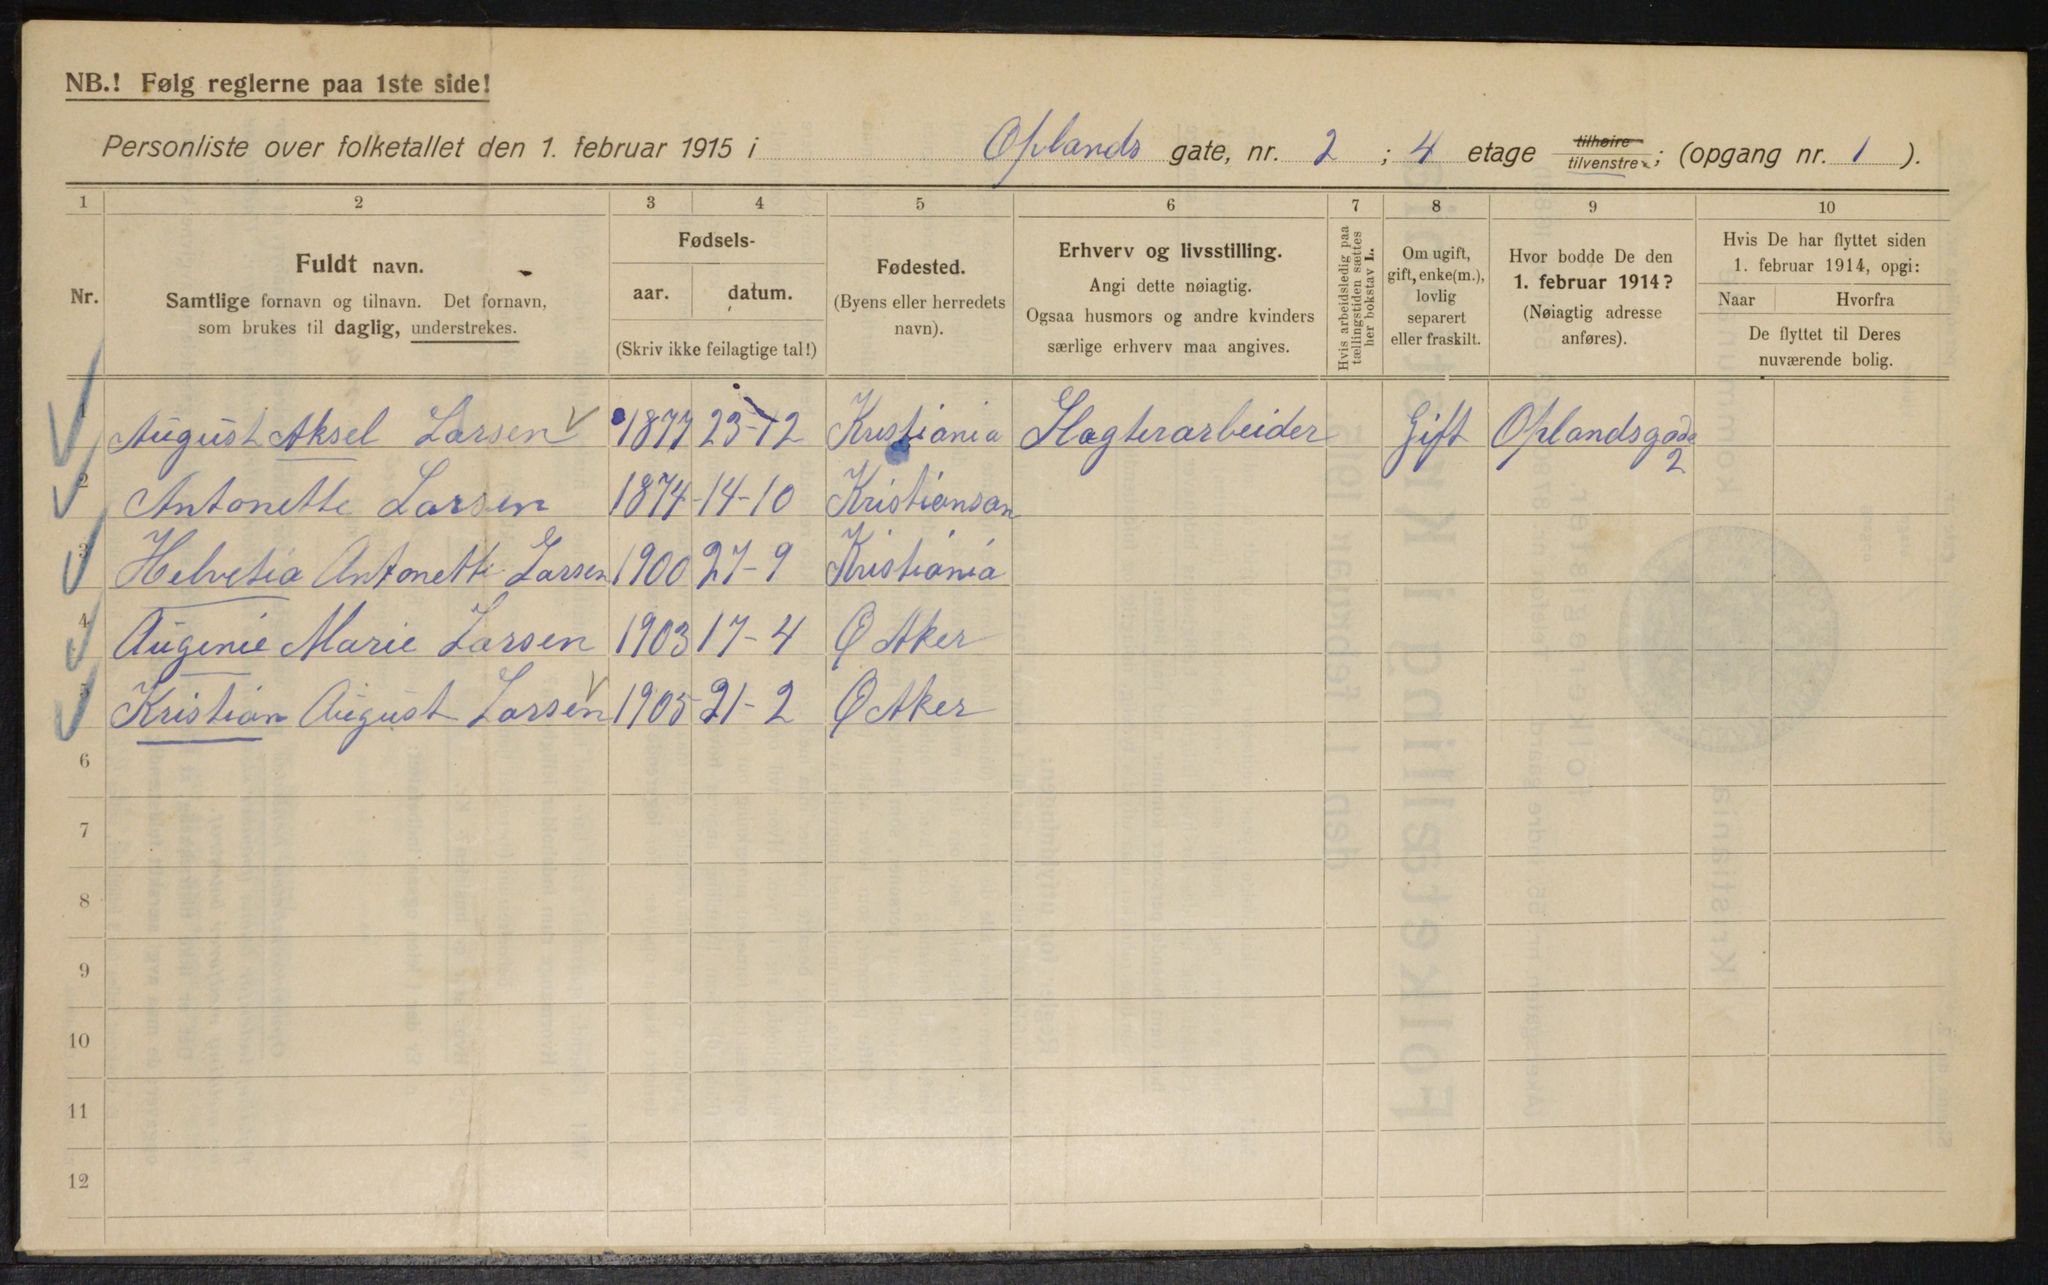 NB.! Følg reglerne paa 1ste side!
Personliste over folketallet den 1. februar 1915 i Oplands gate, nr. 2 ; 4 etage tilhøire tilvenstre ; (opgang nr. 1 ).
1 2 3 4 5 6 7 8 9 10
Nr.
Fuldt navn.
Samtlige fornavn og tilnavn. Det fornavn,
som brukes til daglig, understrekes.
Fødsels-
aar. datum.
(Skriv ikke feilagtige tal!)
Fødested.
(Byens eller herredets
navn).
Erhverv og livsstilling.
Angi dette nøiagtig.
Ogsaa husmors og andre kvinders
særlige erhverv maa angives.
Hvis arbeidsledig paa
tællingstiden sættes
her bokstav L.
Om ugift,
gift, enke(m.),
lovlig
separert
eller fraskilt.
Hvor bodde De den
1. februar 1914?
(Nøiagtig adresse
anføres).
Hvis De har flyttet siden
1. februar 1914, opgi:
Naar Hvorfra
De flyttet til Deres
nuværende bolig.
1 August Aksel Larsen 1877 23-12 Kristiania Slagterarbeider Gift Oplandsgade
2
2 Antonette Larsen 1874 14-10 Kristiansan
3 Helvetia Antonette Larsen 1900 27-9 Kristiania
4 Augenie Marie Larsen 1903 17-4 Ø Aker
5 Kristian August Larsen 1905 21-2 Ø Aker
6
7
8
9
10
11
12